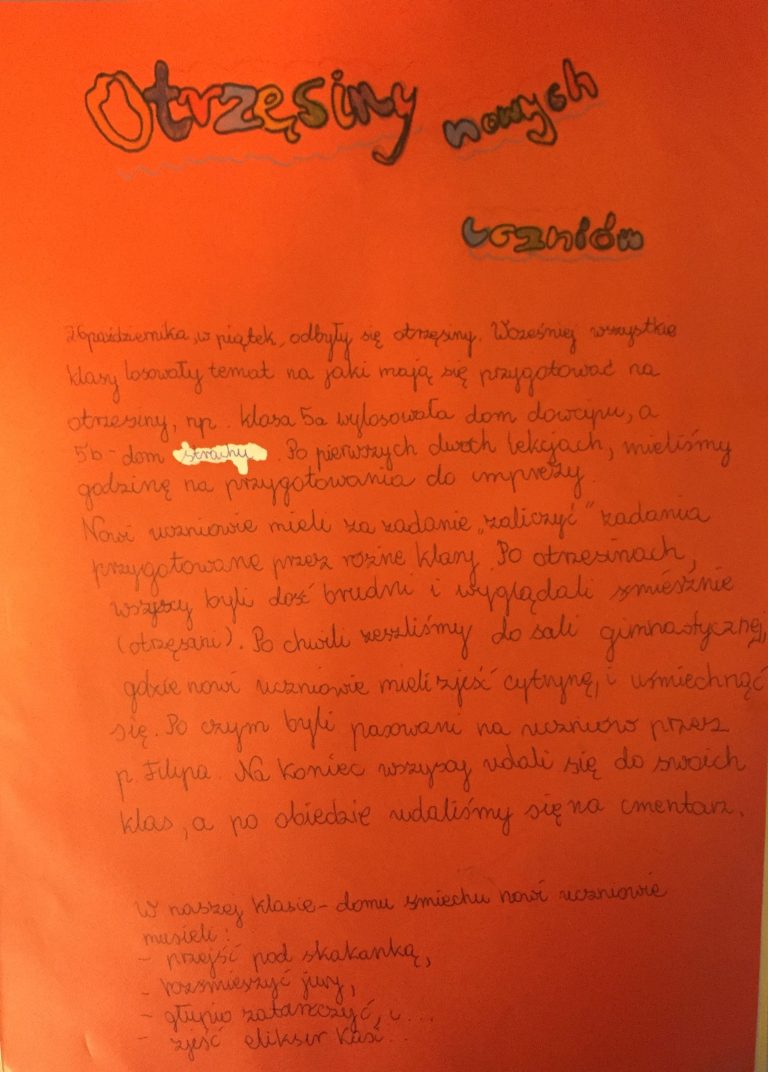 Otrzęsiny nowych
uczniów
26 października, w piątek, odbyły się otrzęsiny. Wcześniej wszystkie
klasy losowały temat na jaki mają się przygotować na
otrzęsiny, np. klasa 5a wylosowała dom dowcipu, a
5b - dom strachu. Po pierwszych dwóch lekcjach, mieliśmy
godzinę na przygotowania do imprezy.
Nowi uczniowie mieli za zadanie „zaliczyć" zadania
przygotowane przez różne klasy. Po otrzęsinach,
wszyscy byli dość brudni i wyglądali śmiesznie
(otrzęsani). Po chwili zeszliśmy do sali gimnastycznej,
gdzie nowi uczniowie mieli zjeść cytrynę, i uśmiechnąć
się. Po czym byli pasowani na uczniów przez
p. Filipa. Na koniec wszyscy udali się do swoich
klas, a po obiedzie udaliśmy się na cmentarz.
W naszej klasie - domu śmiechu nowi uczniowie
musieli:
- przejść pod skakanką,
- rozśmieszyć jury,
- głupio zatańczyć, i...
- zjeść eliksir Kasi...